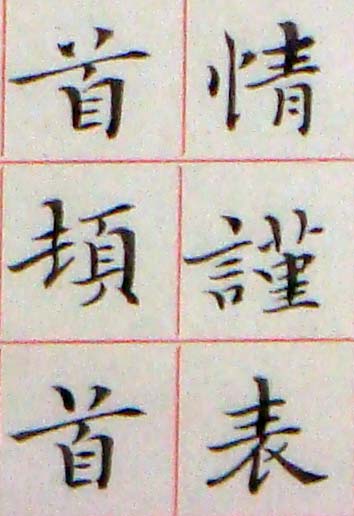 情謹表
首頓首